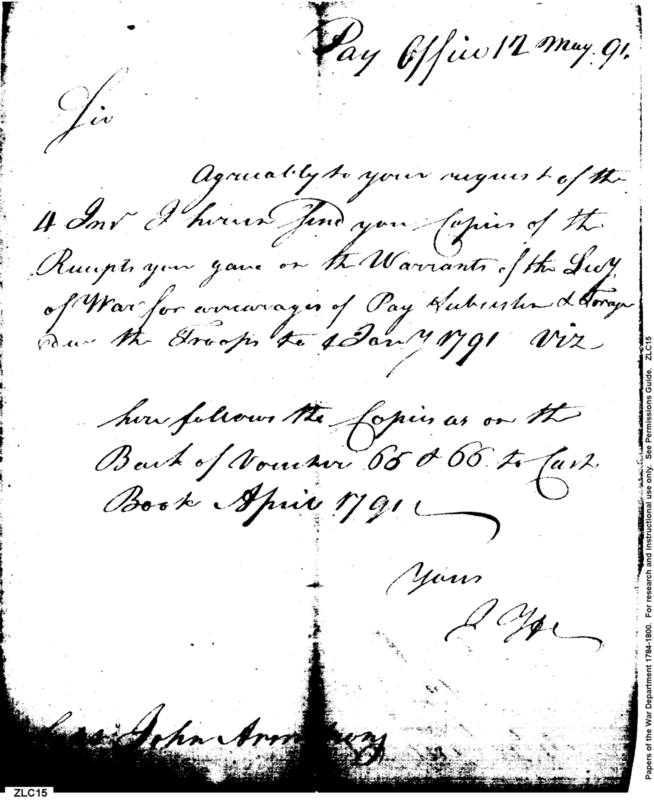 Pay Office 12 May. 91.
Sir
Agreeably to your request of the
4 Inst I herein send you Copies of the
Receipts you gave on the Warrants of the Secy
of War for arrearages of Pay Subsisten & Forage
due the Troops to 1 Jany 1791 Viz
here follows the Copies as on the
Back of Voucher 65 & 66 to Cash
Book April 1791
Yours
J H
John Armstrong
ZLC15
Papers of the War Department 1784-1800. For research and instructional use only. See Permissions Guide. ZLC15